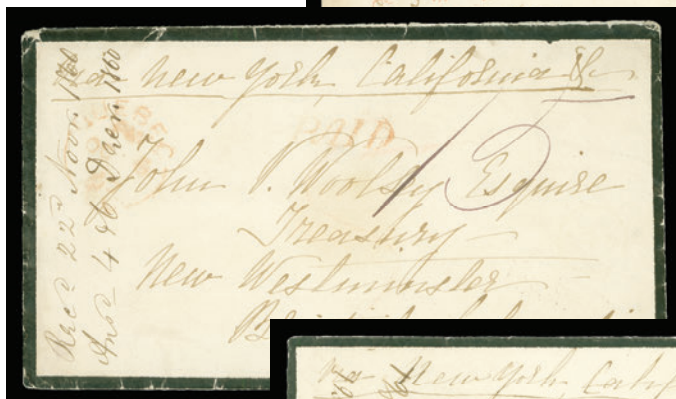 via New York, California &c
PAID
15
John V. Woolsey Esquire
Treasury
New Westminster
Recd 22d Novr. 1860
Ansd 4th Decr 1860
via New York, Calif